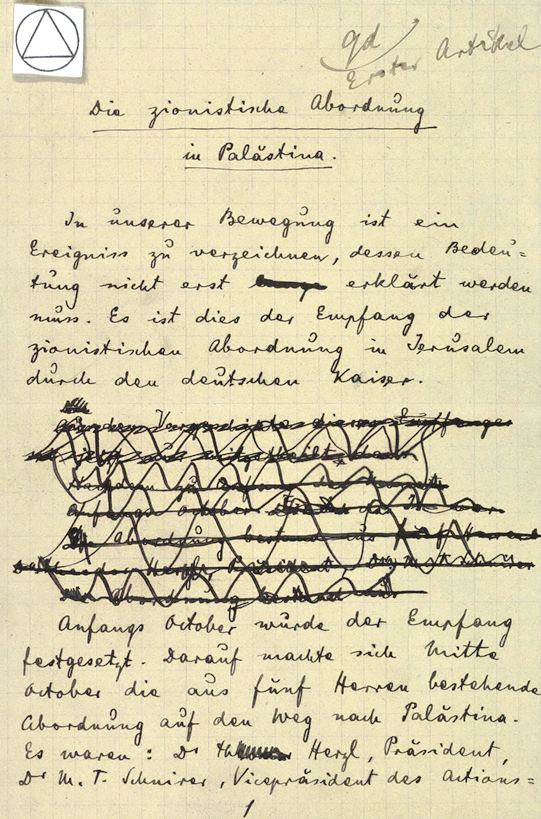 gd
Erster Artikel
Die zionistische Abordnung
in Palästina.
In unserer Bewegung ist ein
Ereigniss zu verzeichnen, dessen Bedeu=
tung nicht erst erklärt werden
muss. Es ist dies der Empfang der
zionistischen Abordnung in Jerusalem
durch den deutschen Kaiser.
Anfangs October
Abordnung bestand aus fünf Herren
Herzl, Präsident
Abordnung bestand aus
Anfangs October wurde der Empfang
festgesetzt. Darauf machte sich Mitte
October die aus fünf Herren bestehende
Abordnung auf den Weg nach Palästina.
Es waren: Dr Herzl, Präsident,
Dr M. T. Schnirer, Vicepräsident des Actions=
1